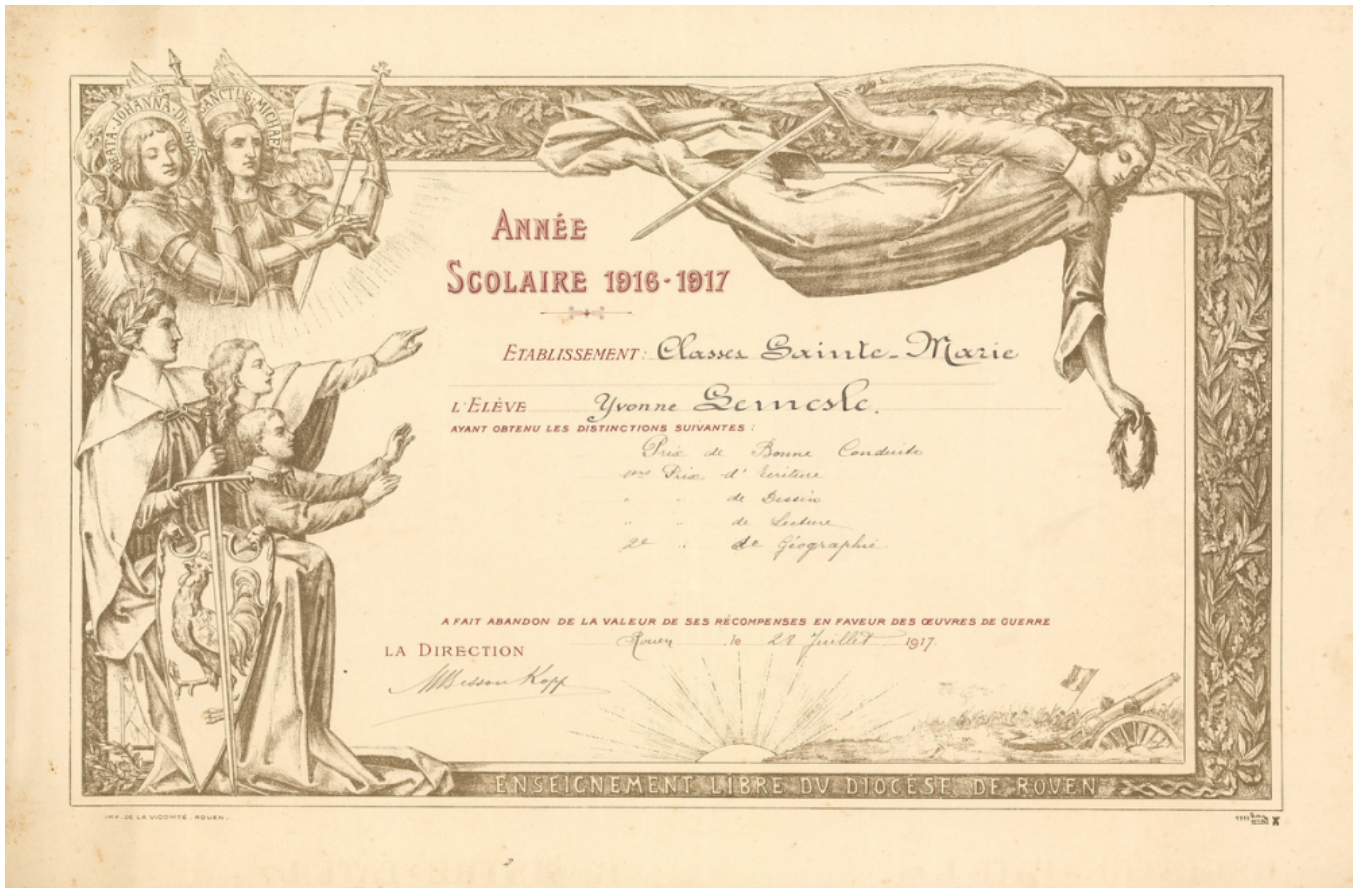 BEATA·JOHANNA·DE·ARC
SANCTUS·MICHAEL
ANNÉE
SCOLAIRE 1916-1917
ETABLISSEMENT: Classes Sainte-Marie
L'ELÈVE Yvonne Lemesle.
AYANT OBTENU LES DISTINCTIONS SUIVANTES :
Prix de Bonne Conduite
1ers Prix d'Ecriture
" " de Dessin
" " de Lecture
2e " de Géographie
A FAIT ABANDON DE LA VALEUR DE SES RÉCOMPENSES EN FAVEUR DES ŒUVRES DE GUERRE
Rouen le 28 Juillet 1917.
LA DIRECTION
MBesson Kopp
ENSEIGNEMENT LIBRE DU DIOCÈSE DE ROUEN
IMP. DE LA VICOMTÉ - ROUEN.